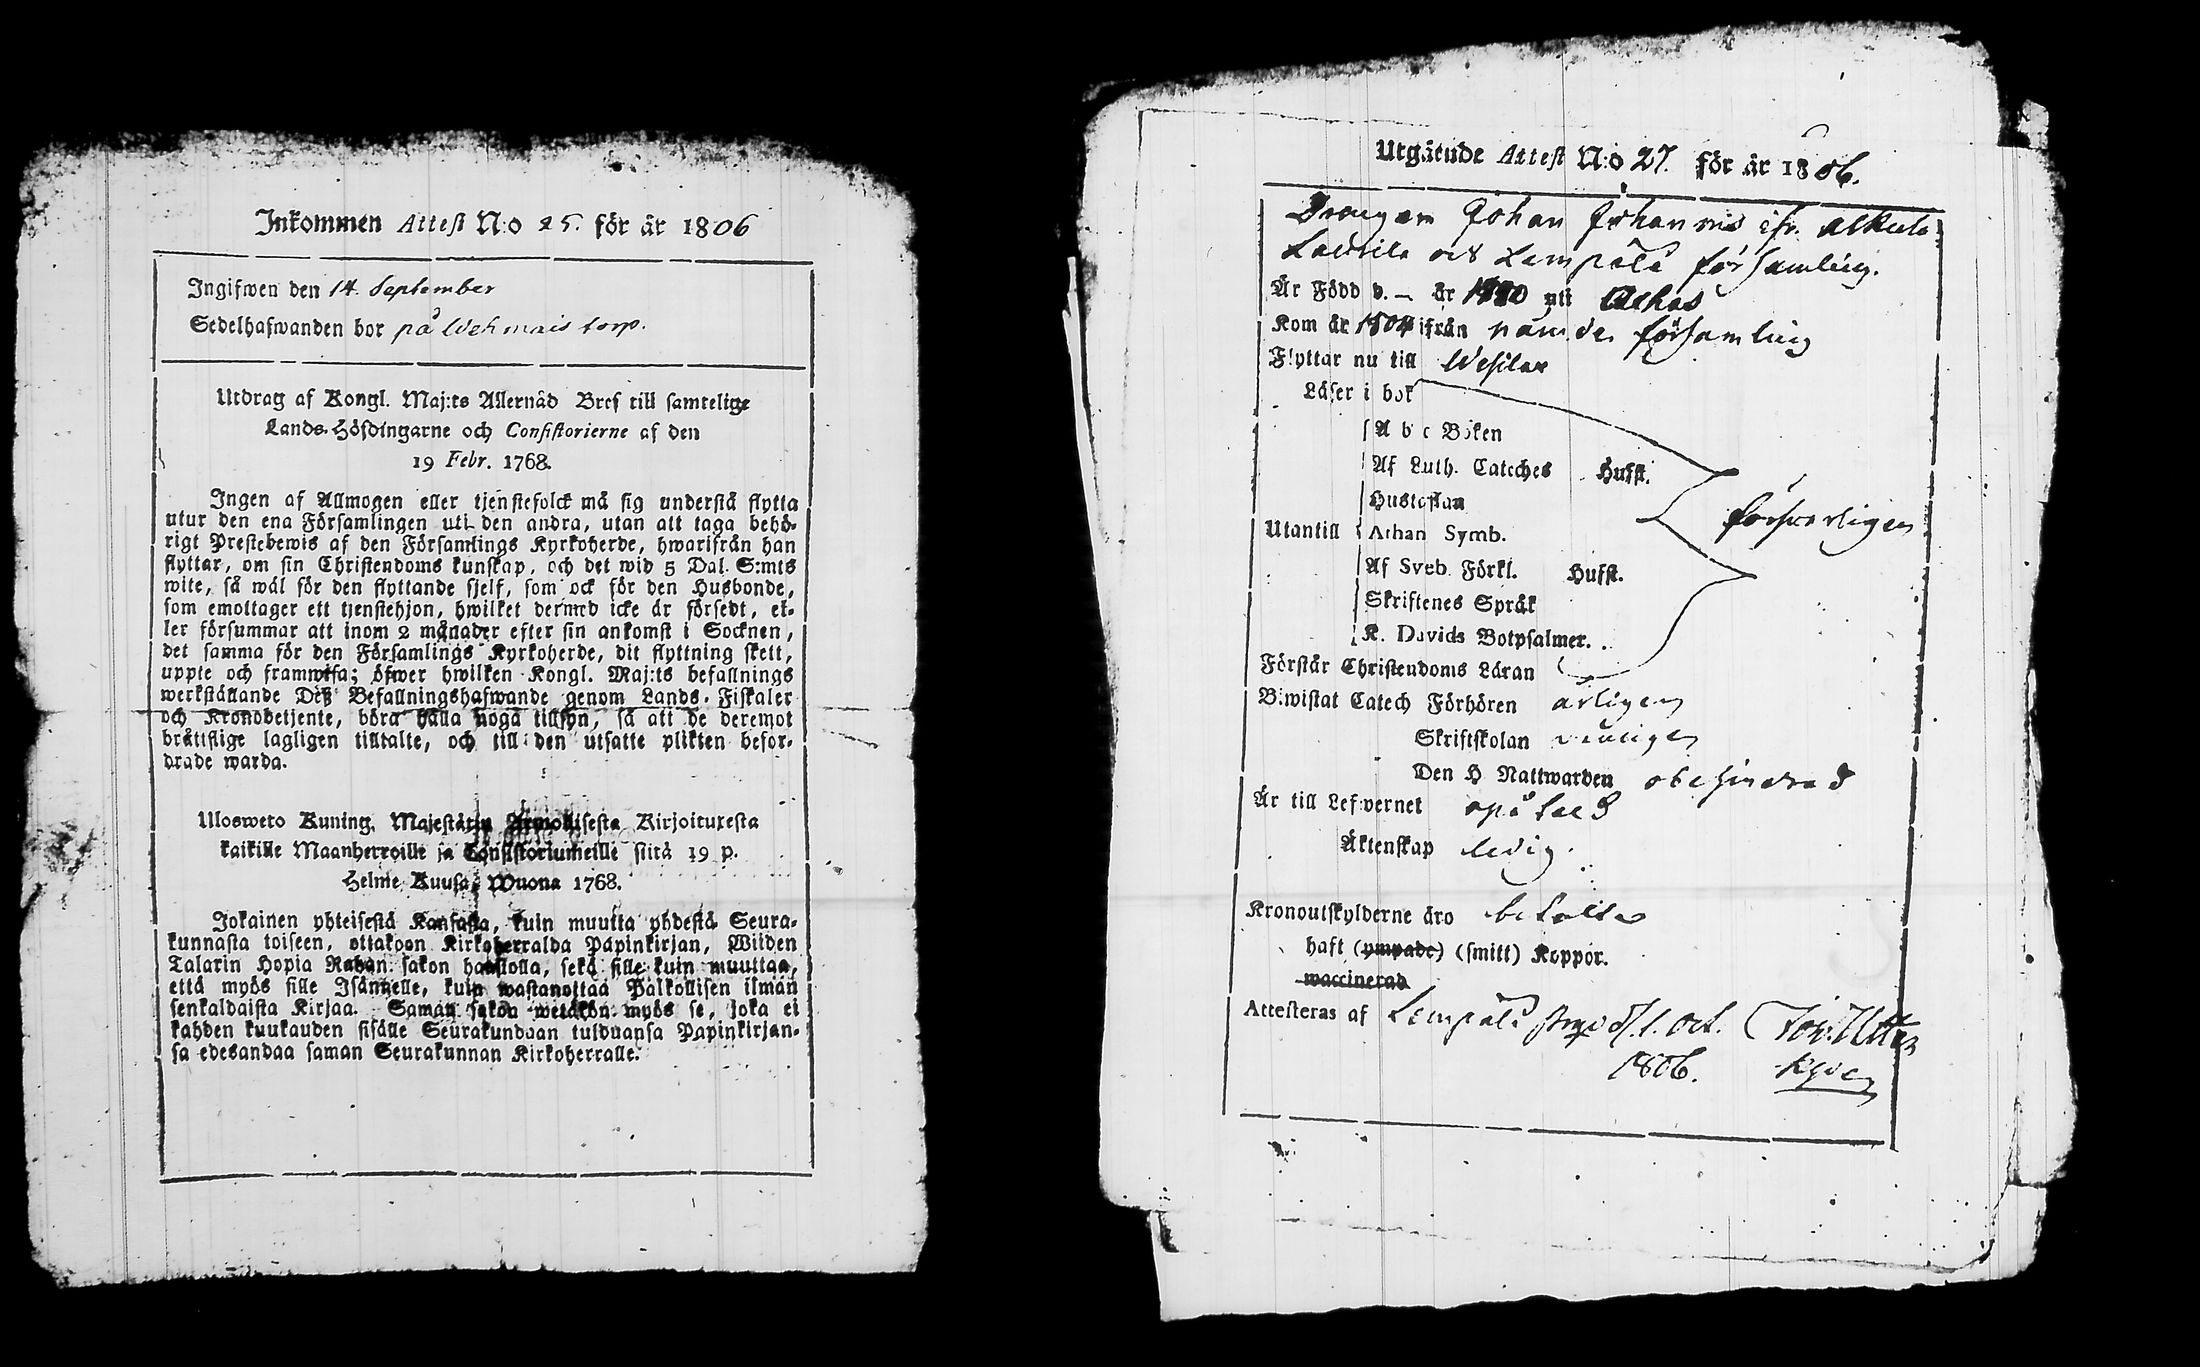 Inkommen Attest N:o 25. för år 1806
Ingifwen den 14. September
Sedelhafwanden bor på Wehmais torp.
Utdrag af Kongl. Maj:ts Allernåd Bref till samtelige
Lands-Höfdingarne och Consistorierne af den
19 Febr. 1768.
Ingen af Allmogen eller tjenstefolck må sig understå flytta
utur den ena Församlingen uti den andra, utan att taga behö-
rigt Prestebewis af den Församlings Kyrkoherde, hwarifrån han
flyttar, om sin Christendoms kunskap, och det wid 5 Dal. S:mts
wite, så wäl för den flyttande sjelf, som ock för den Husbonde,
som emottager ett tjenstehjon, hwilket dermed icke är försedt, el-
ler försummar att inom 2 månader efter sin ankomst i Socknen,
det samma för den Församlings Kyrkoherde, dit flyttning skett,
uppte och framwisa; öfwer hwilken Kongl. Maj:ts befallnings
werkställande Deß Befallningshafwande genom Lands-Fiskaler
och Kronobetjente, böra hålla noga tillsyn, så att de deremot
bråttslige lagligen tilltalte, och till den utsatte plikten befor-
drade warda.
Ulosweto Kuning. Majestätin Armollisesta Kirjoituxesta
kaikille Maanherroille ja Consistoriumeille siitä 19 p.
Helme Kuusa Wuona 1768.
Jokainen yhteisestä Kansasta, kuin muutta yhdestä Seura-
kunnasta toiseen, ottakoon Kirkoherralda Papinkirjan, Wiiden
Talarin Hopia Rahan sakon haastolla, sekä sille kuin muuttaa,
että myös sille Isännelle, kuin wastanottaa Palkollisen ilman
senkaldaista Kirjaa. Saman sakon wetäkön myös se, joka ei
kahden kuukauden sisälle Seurakundaan tulduansa Papinkirjan-
sa edesandaa saman Seurakunnan Kirkoherralle.
Utgående Attest N:o 27. för år 1806.
Drängen Johan Johannis ifr. Alkula
Laurila och Lempälä församling.
Är Född d. — år 1780 uti
Kom år 1804 ifrån församling
Flyttar nu till Wesilax
Läser i bok
A b c Boken
Af Luth. Cateches Hufst.
Hustaflan
Utantill Athan Symb.
försvarligen
Af Sveb. Förkl. Hufst.
Skriftenes Språk
K. Davids Botpsalmer.
Förstår Christendoms Läran
Biwistat Catech Förhören årligen
Skriftskolan
Den H Nattwarden obehindrad
Är till Lefvernet opåtald
Äktenskap ledig.
Kronoutskylderne äro betalte
haft (ympade) (smitt) Koppor.
waccinerad
Attesteras af Lempälä d. 1. Oct.
1806.